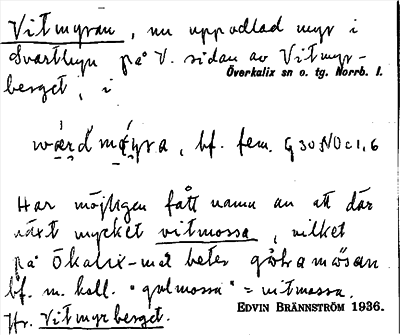 Vitmyran, nu uppodlad myr i
Svartbyn på V. sidan av Vitmyr-
Överkalix sn o. tg. Norrb. l.
berget, i
bf. fem.
Har möjligen fått namn av att där
växt mycket vitmossa, vilket
på Ökalix-mål heter
bf. m. koll. "gulmossa" = vitmossa.
EDVIN BRÄNNSTRÖM 1936.
Jfr. Vitmyrberget.